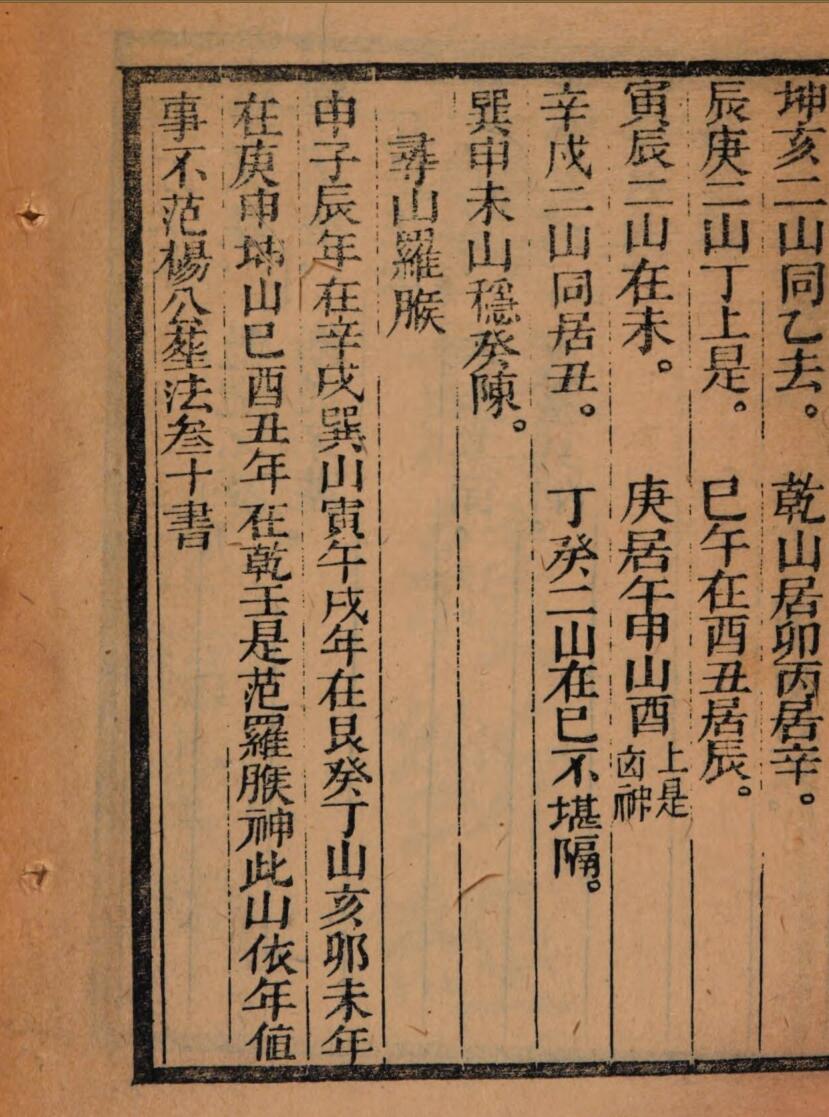 坤亥二山同乙去。　乾山居卯丙居辛。
辰庚二山丁上是。　巳午在酉丑居辰。
寅辰二山在未。　庚居午申山酉上是凶神
辛戌二山同居丑。　丁癸二山在巳不堪隔。
巽申未山穩癸陳。
尋山羅睺
申子辰年在辛戌巽山寅午戌年在艮癸丁山亥卯未年
在庚申坤山巳酉丑年在乾壬是范羅睺神此山依年值
事不范楊公塟法叁十書